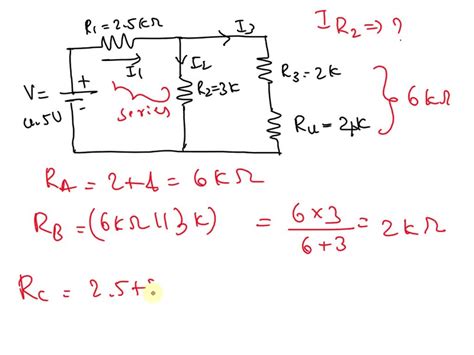 R₁=2.5kΩ
I₃
I R₂ => ?
I₁
I₂
R₃=2k
V=
4.5V
+
-
series
R₂=3k
6kΩ
R₄=24k
R_A = 2+4 = 6kΩ
R_B = (6kΩ || 3k) = 6×3 / 6+3 = 2kΩ
R_C = 2.5+